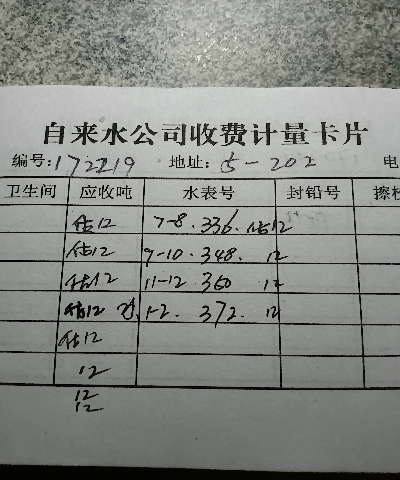 自来水公司收费计量卡片
编号:172219 地址:5-202 电
卫生间 应收吨 水表号 封铅号 擦校
估12 7-8.336.估12
估12 9-10.348. 12
估12 11-12.360 12
估12 1-2. 372. 12
估12
12
12
12